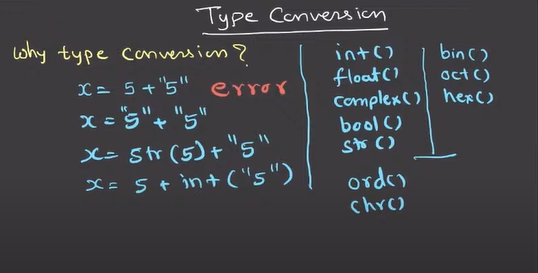 Type Conversion
Why type conversion?
x = 5 + "5" error
x = "5" + "5"
x = str(5) + "5"
x = 5 + int("5")
int()
float()
complex()
bool()
str()
ord()
chr()
bin()
oct()
hex()